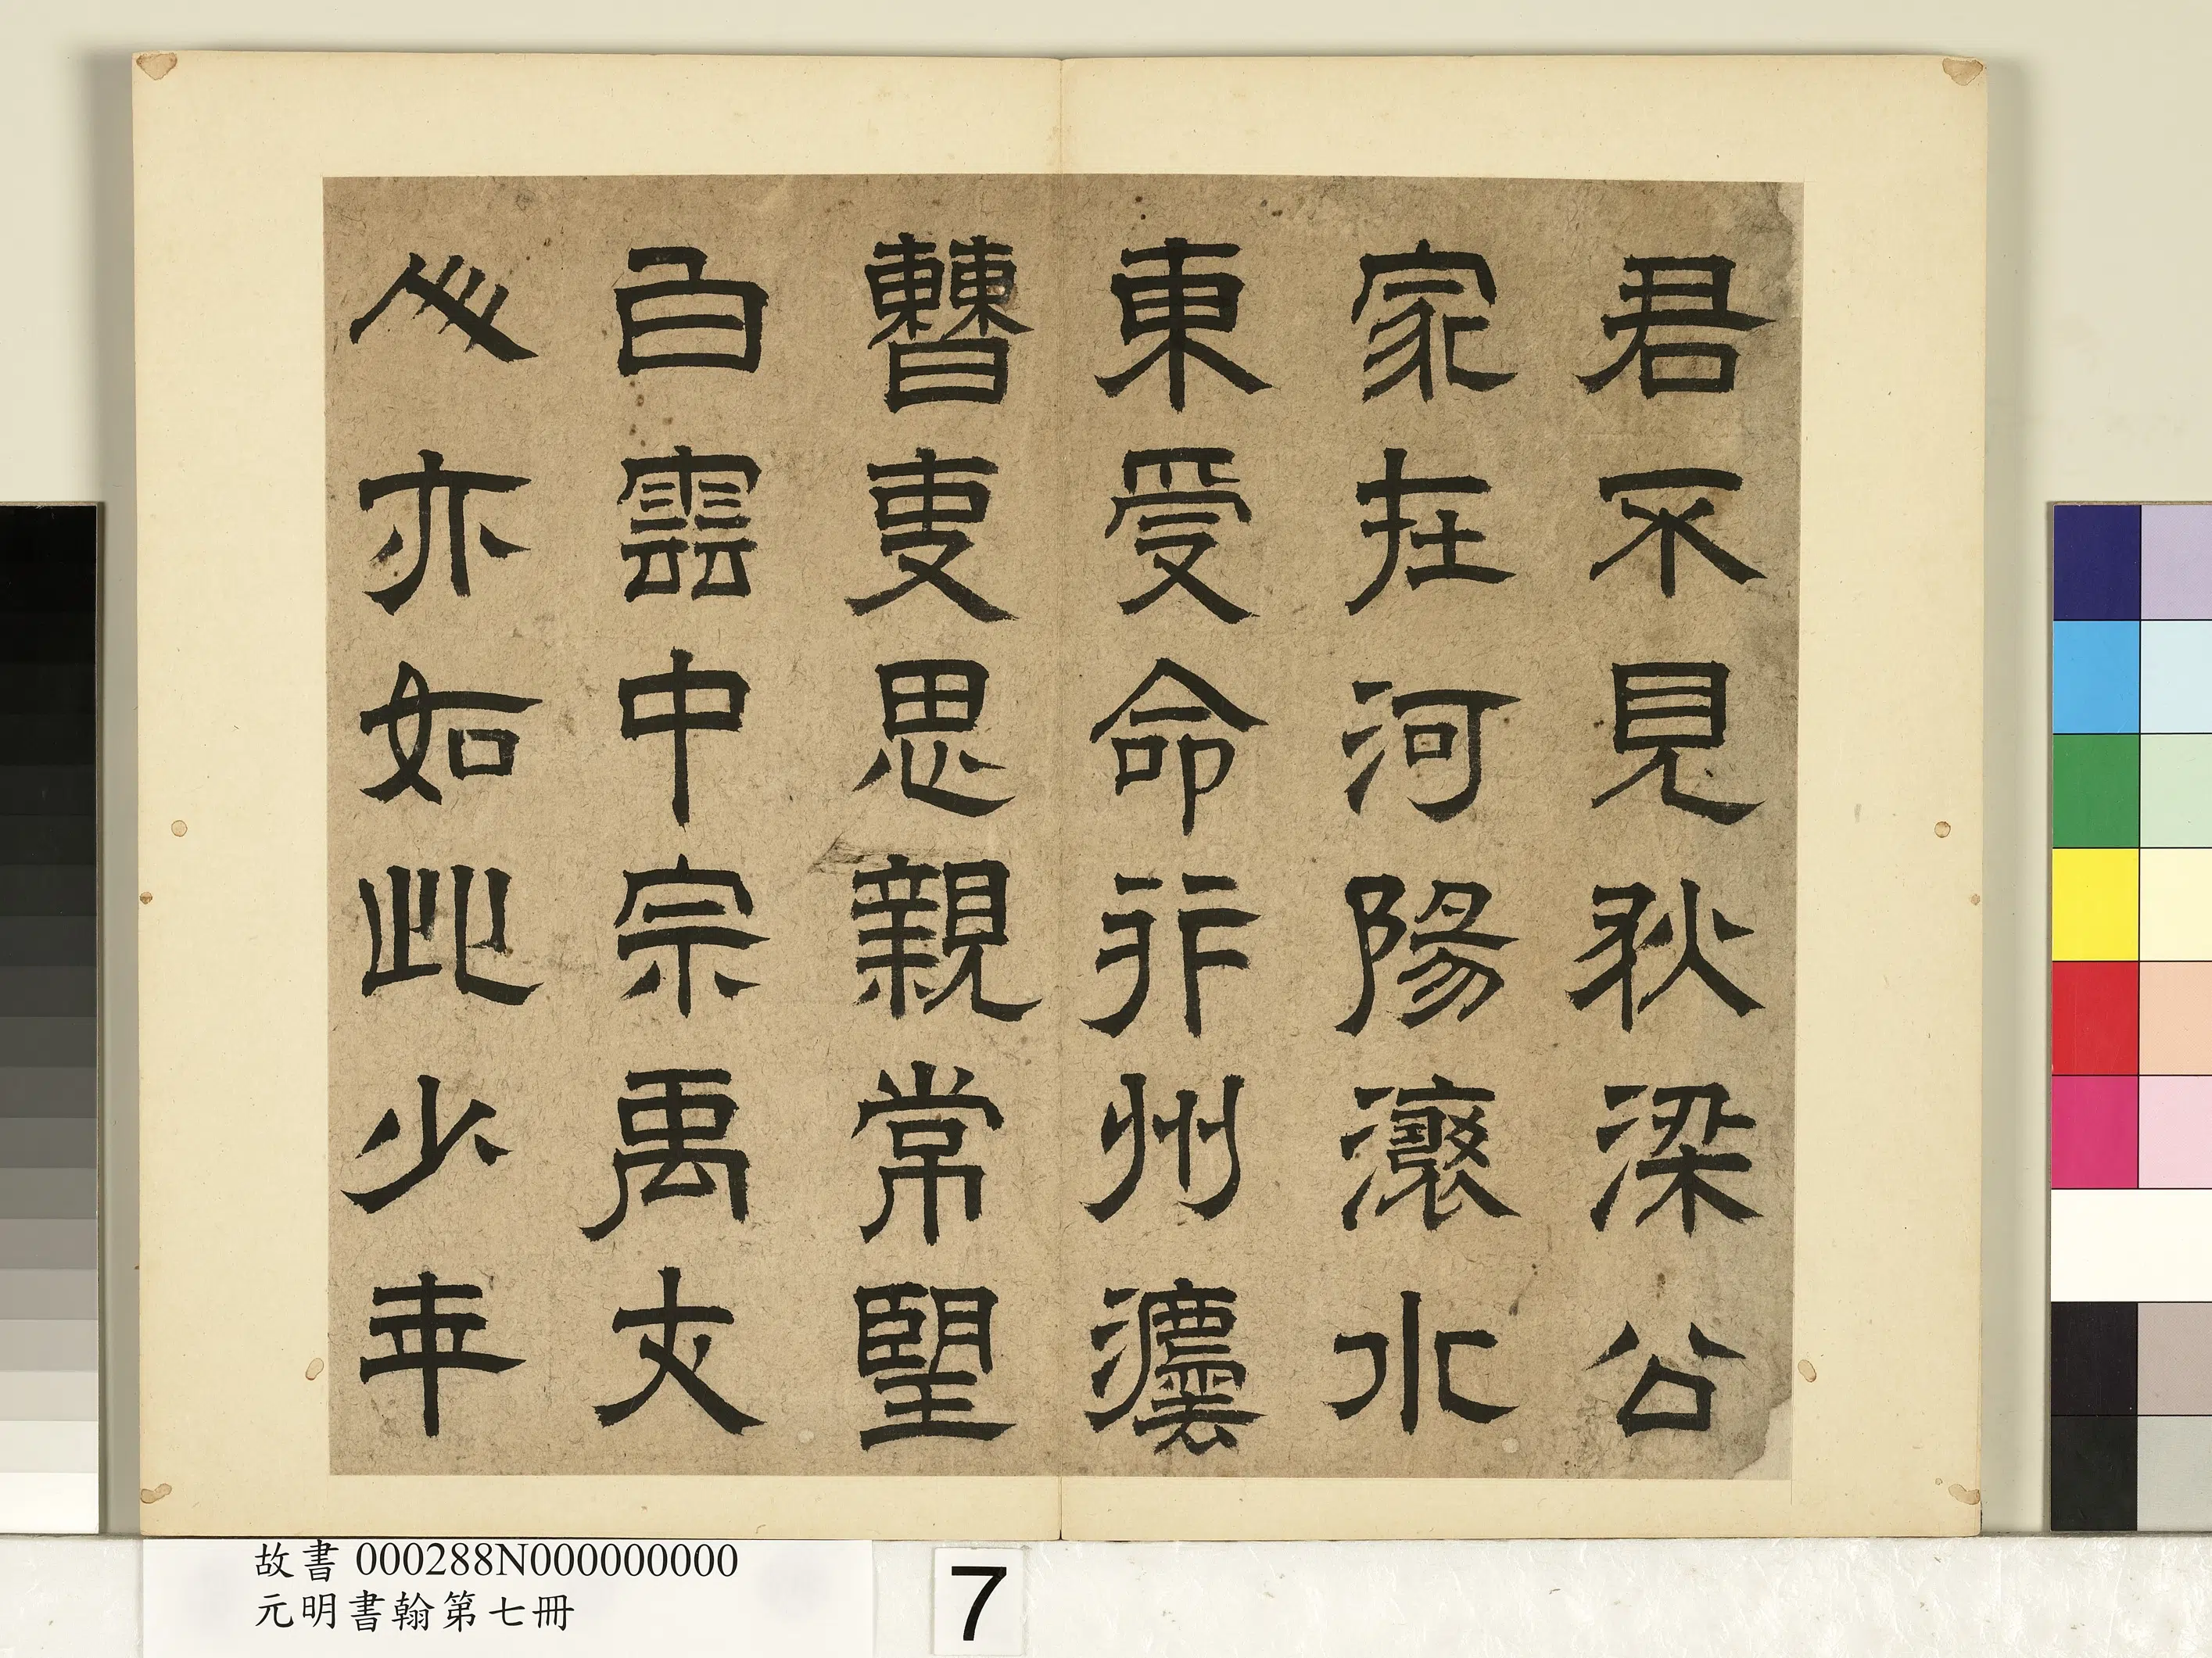 君不見狄梁公
家在河陽瀼水
東受命行州灋
曹吏思親常望
白雲中宗禹丈
人亦如此少年
故書 000288N000000000
元明書翰第七冊
7